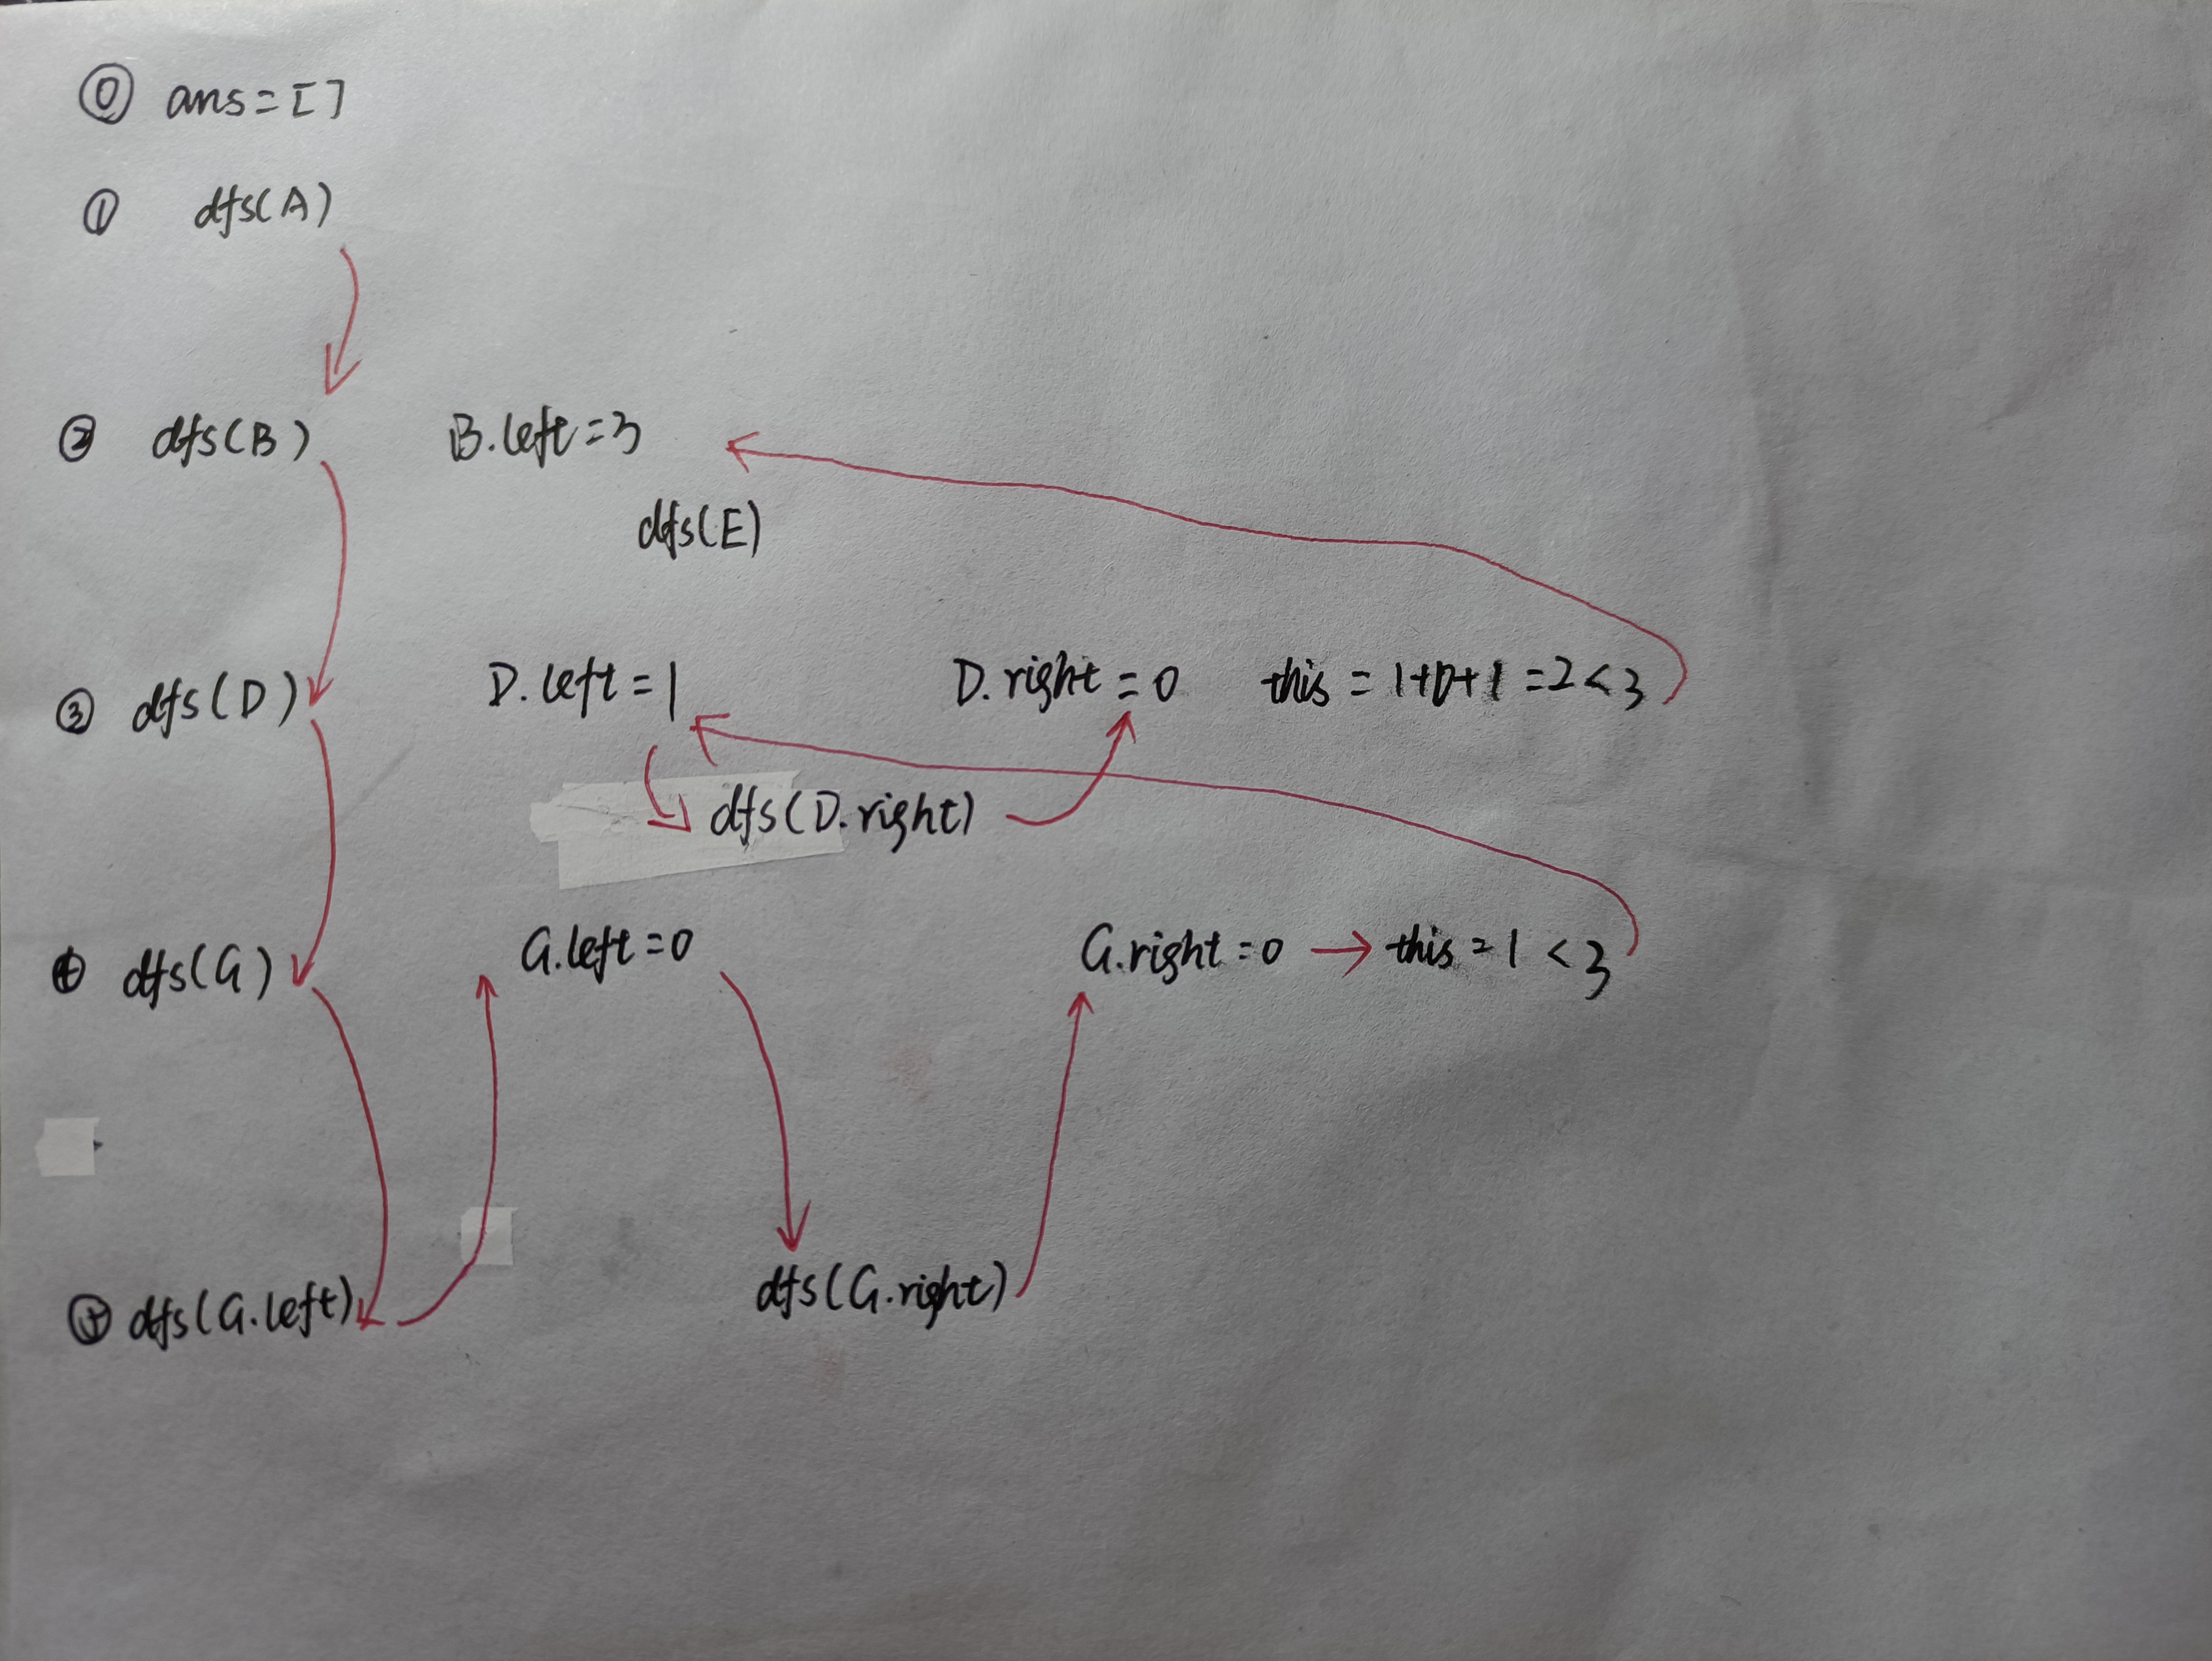 ⓪ ans=[]
① dfs(A)
② dfs(B) B.left=3
dfs(E)
③ dfs(D) D.left=1 D.right=0 this=1+0+1=2<3
dfs(D.right)
④ dfs(G) G.left=0 G.right=0 → this=1<3
⑤ dfs(G.left) dfs(G.right)